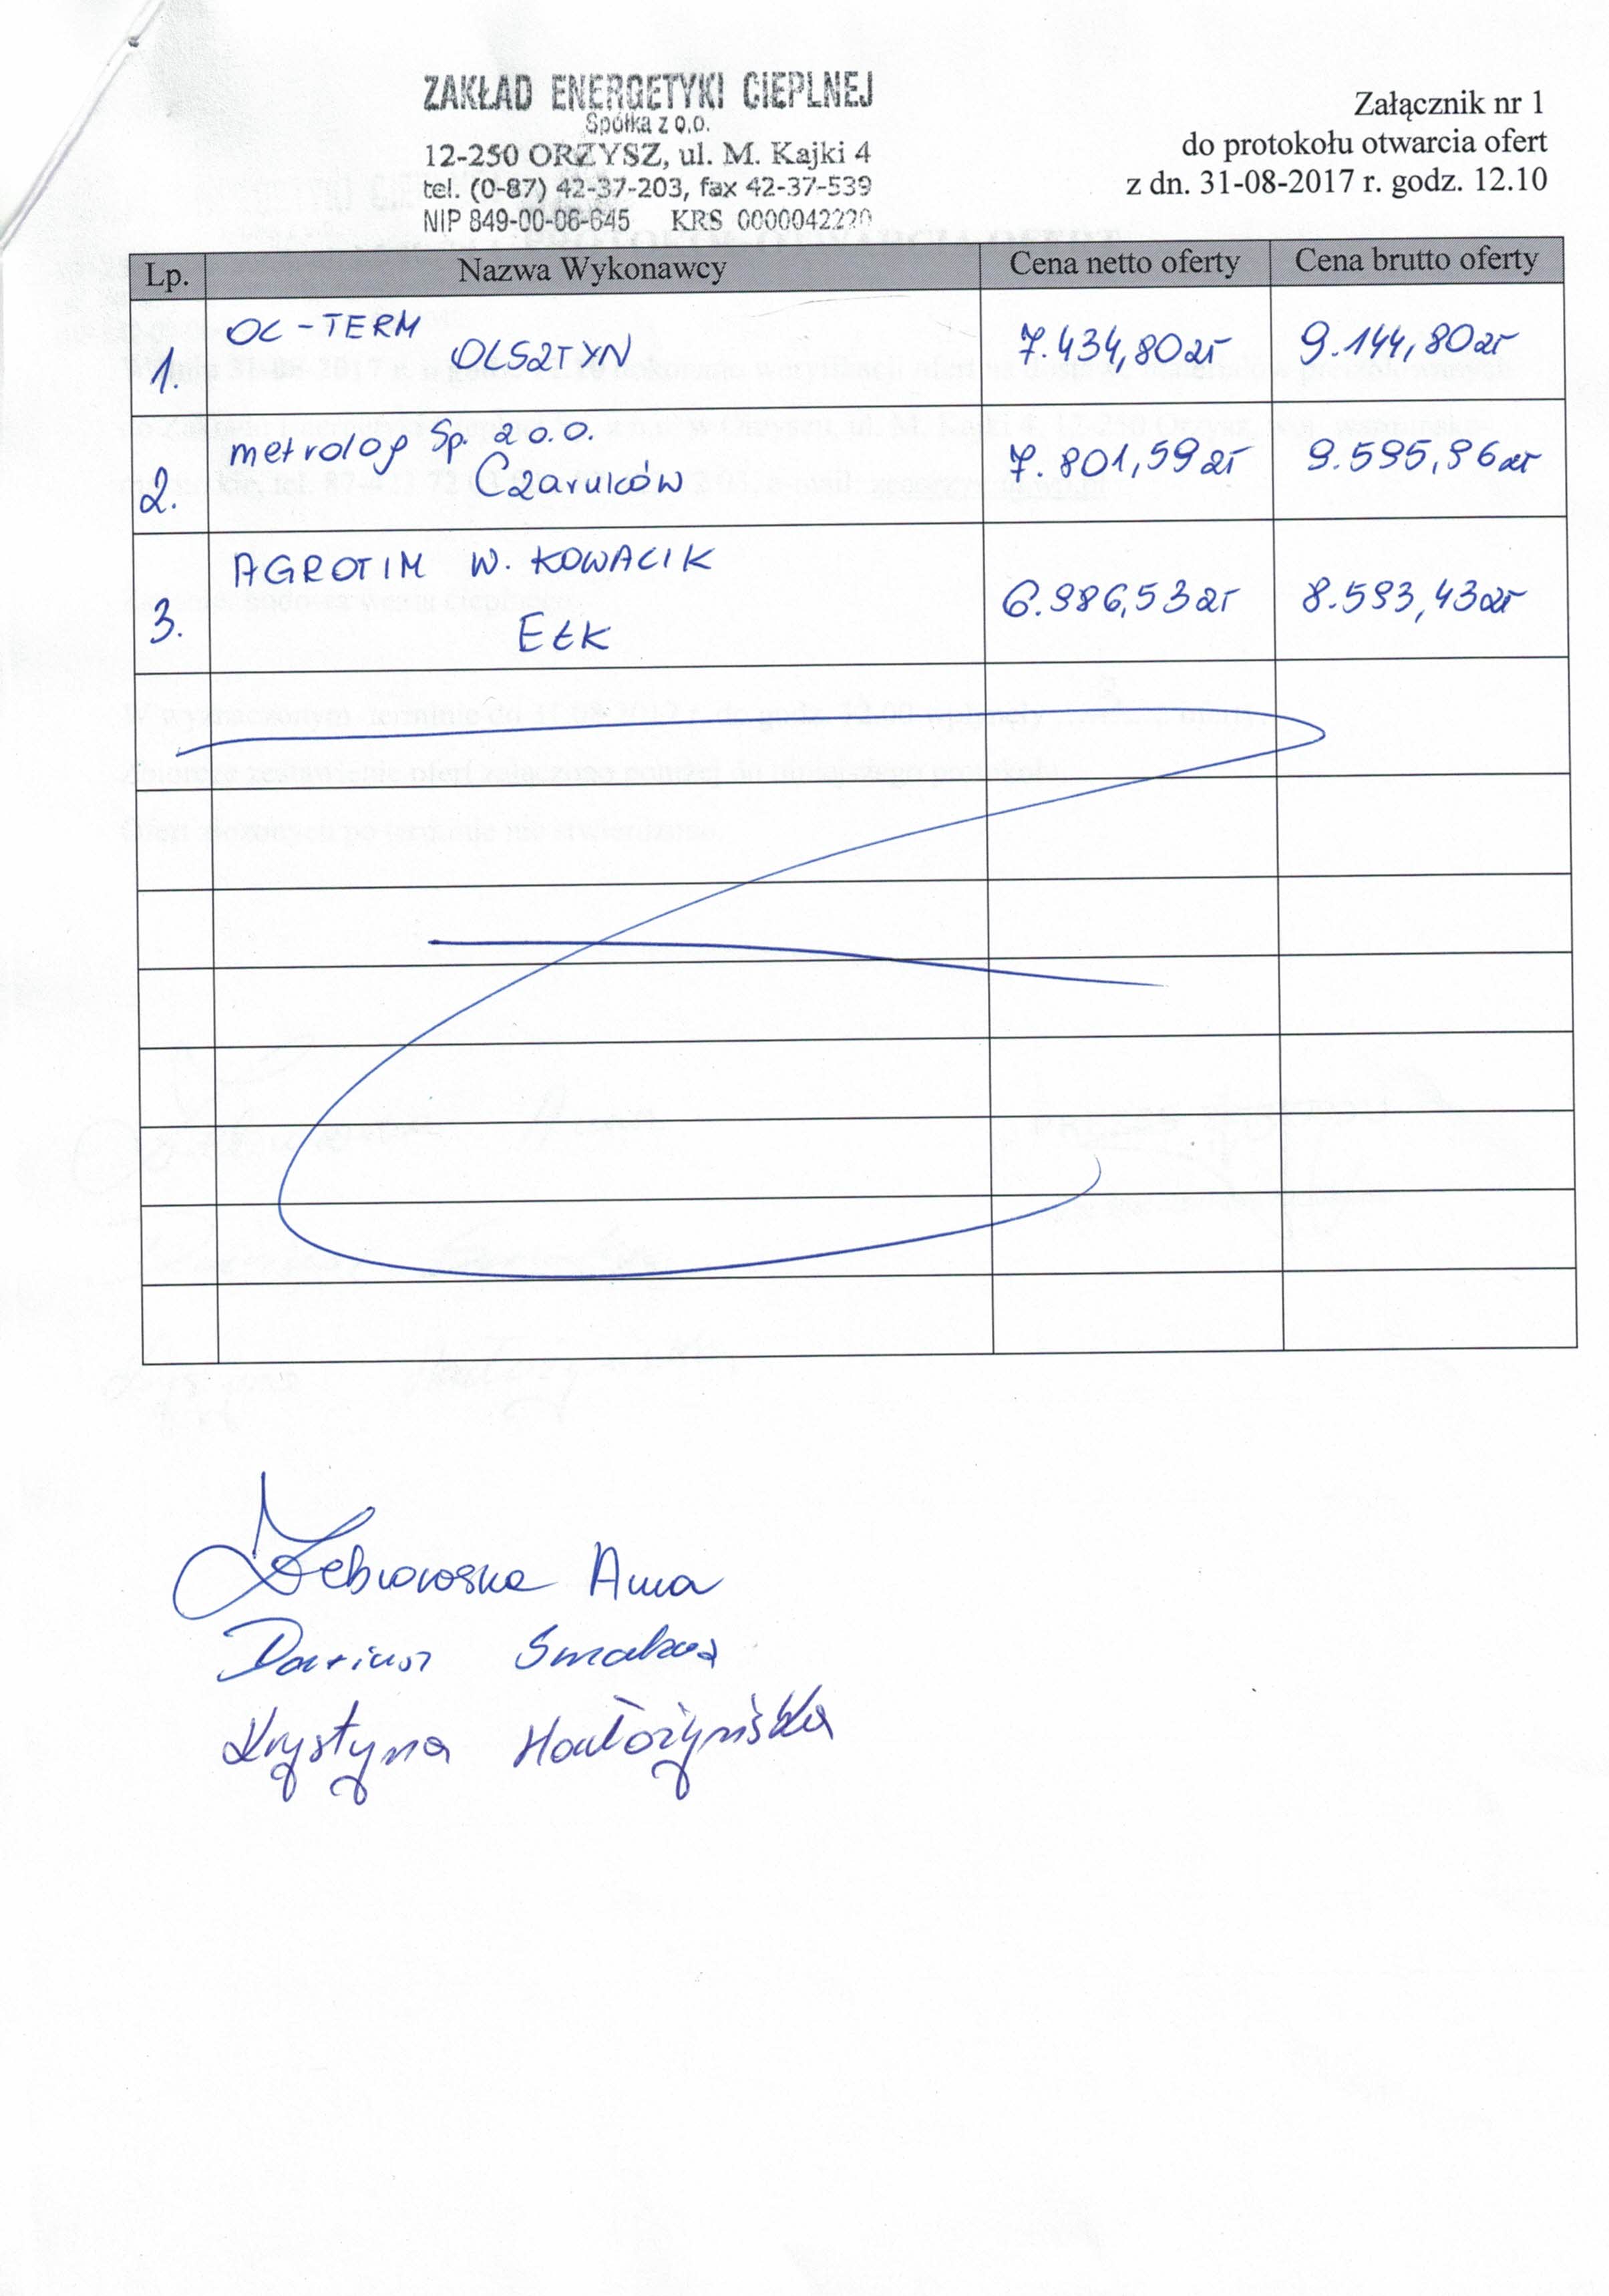 ZAKŁAD ENERGETYKI CIEPLNEJ
Spółka z o.o.
12-250 ORZYSZ, ul. M. Kajki 4
tel. (0-87) 42-37-203, fax 42-37-539
NIP 849-00-06-645 KRS 0000042220
Załącznik nr 1
do protokołu otwarcia ofert
z dn. 31-08-2017 r. godz. 12.10
Lp. Nazwa Wykonawcy Cena netto oferty Cena brutto oferty
OC-TERM
1. OLSZTYN 7.434,80zł 9.144,80zł
metrolog Sp. z o.o.
2. Czarnków 7.801,59zł 9.595,96zł
AGROTIM W. KOWALIK
3. EŁK 6.986,53zł 8.593,43zł
Anna
Dariusz
Krystyna